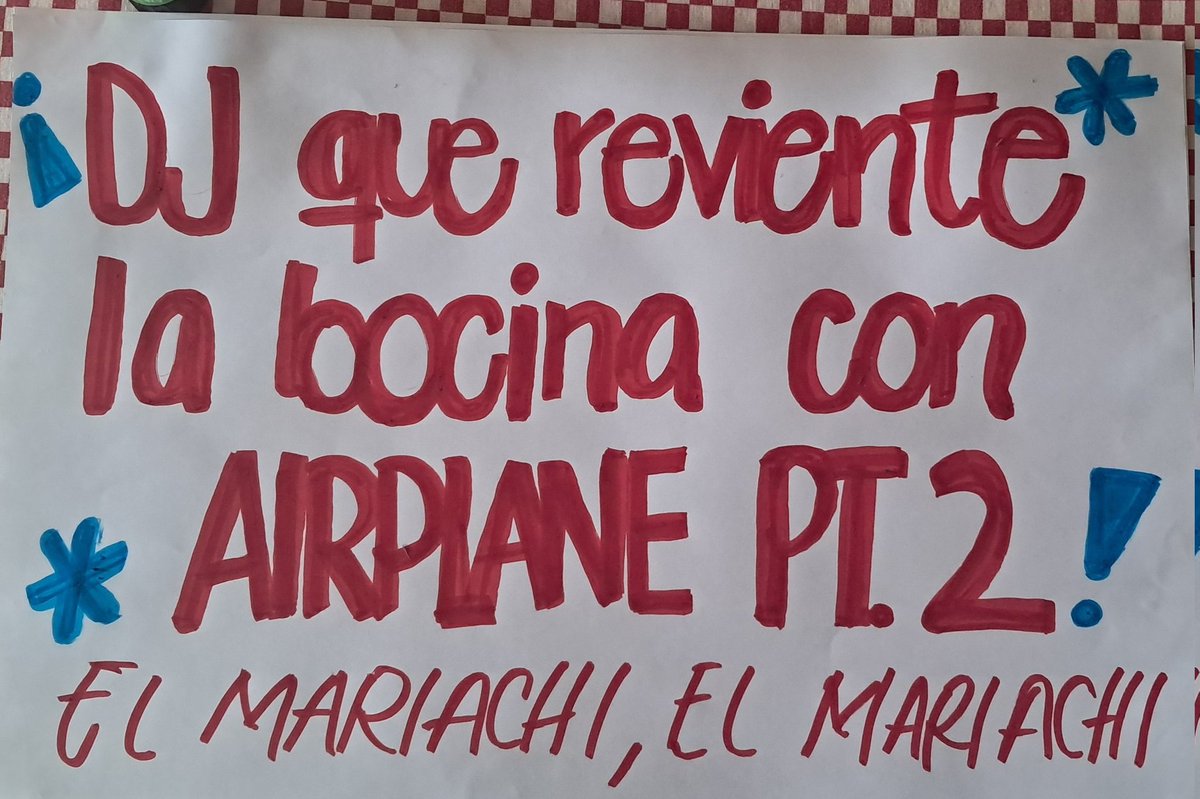 ¡DJ que reviente
la bocina con
AIRPLANE PT.2!
EL MARIACHI, EL MARIACHI